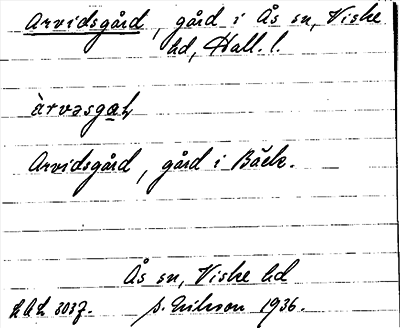 Arvidsgård, gård i Ås sn, Viske
hd, Hall. l.
àrvəsgaɫ
Arvidsgård, gård i Bäck.
Ås sn, Viske hd
S. Nilsson 1936.